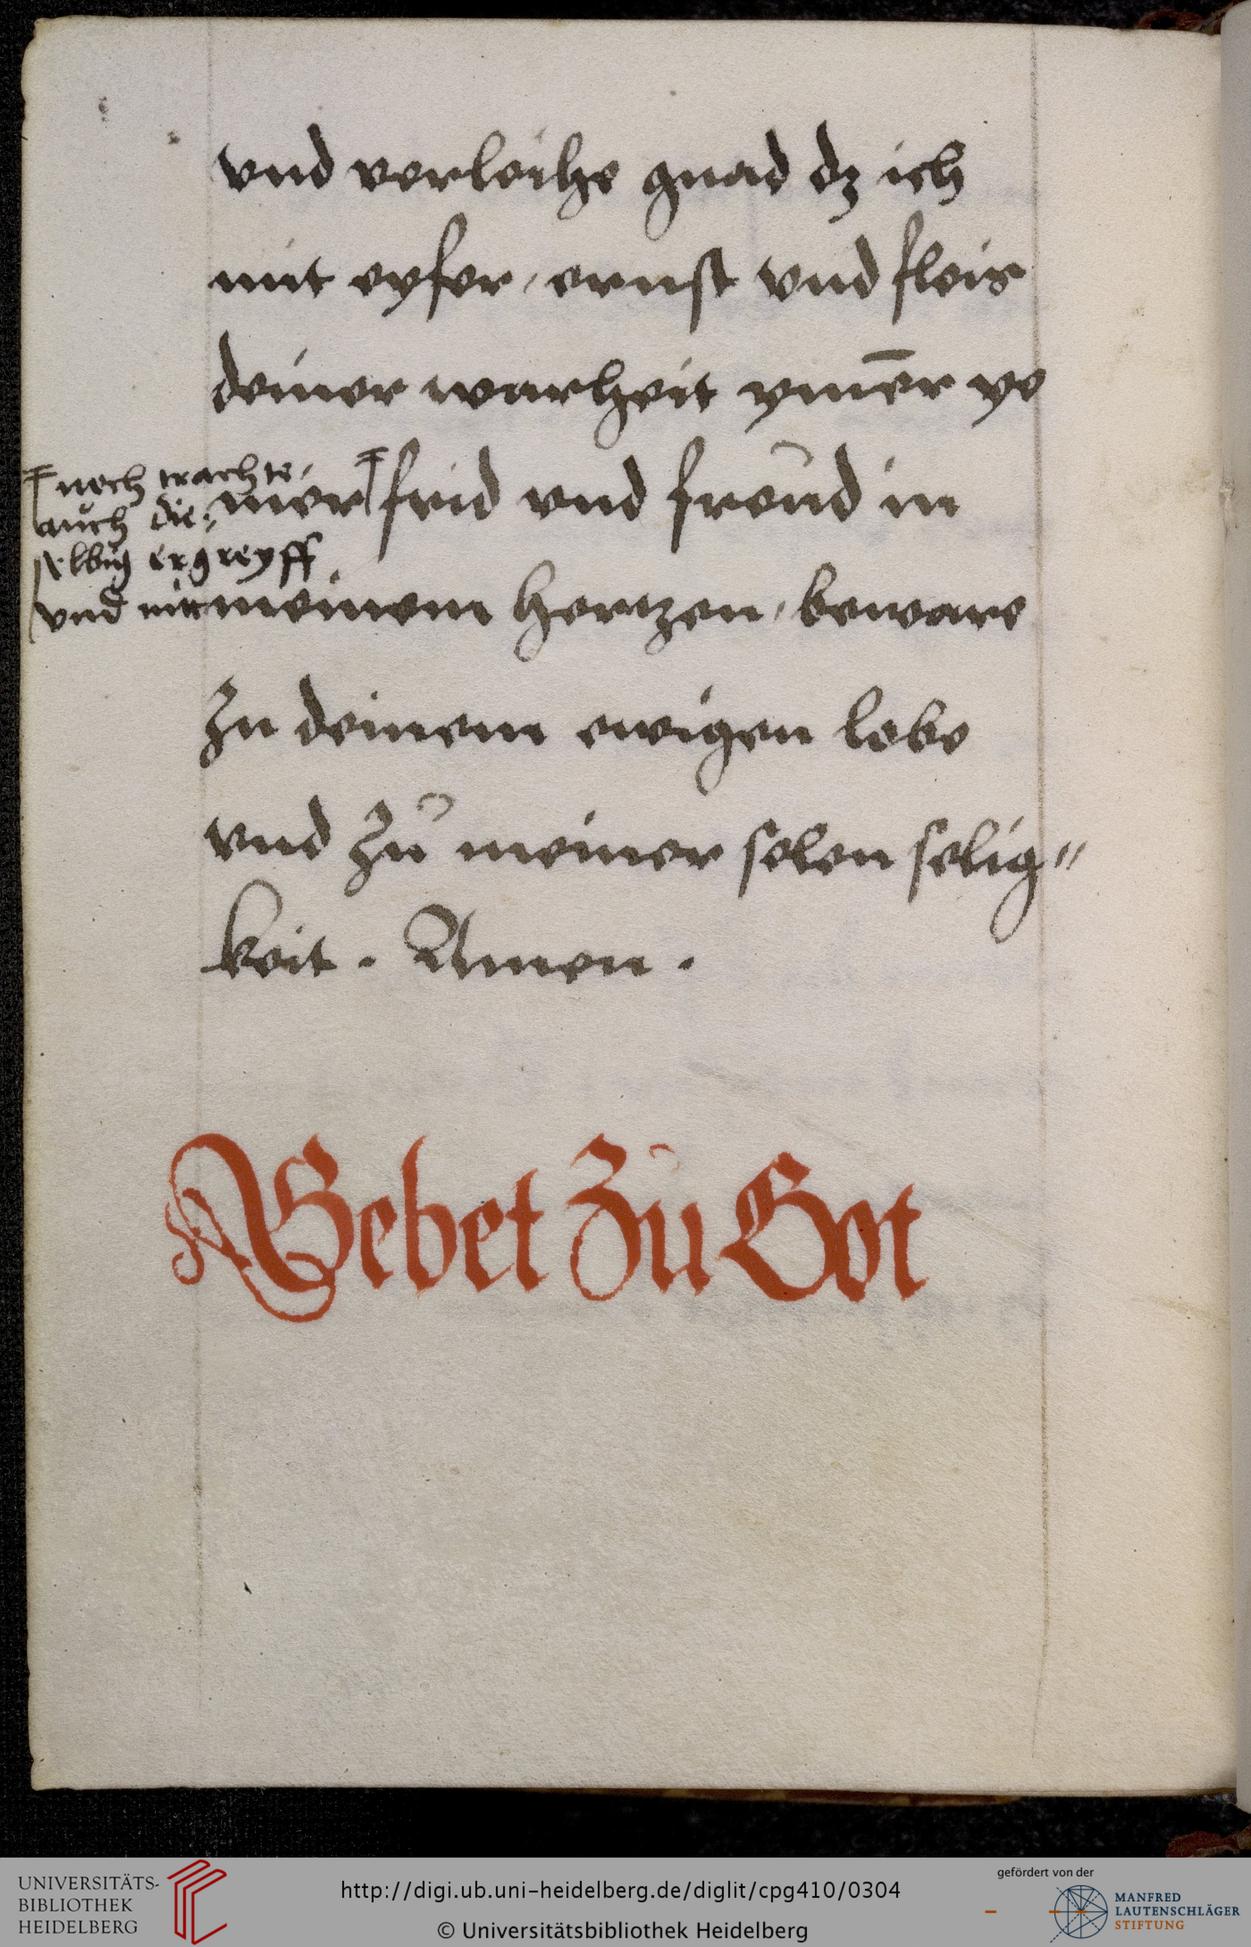 vnd verleihe gnad dz ich
mit eyfer, ernst vnd fleis
deiner warheit ym̄er ye
mer frid vnd freud in
noch trachte,
auch die-
selbig ergreyff
vnd mit
meinem hertzen, beware
zu deinem ewigen lobe
vnd zů meiner selen selig"
keit. Amen.
Gebet Zů Got
UNIVERSITÄTS-
BIBLIOTHEK
HEIDELBERG
http://digi.ub.uni-heidelberg.de/diglit/cpg410/0304
© Universitätsbibliothek Heidelberg
gefördert von der
MANFRED
LAUTENSCHLÄGER
STIFTUNG